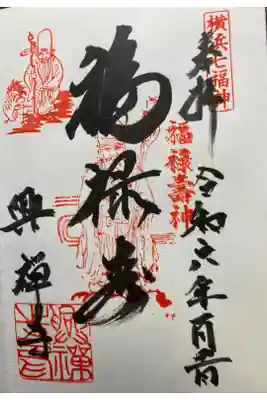 横浜七福神
奉拝
令和六年一月一日
福禄壽神
福禄寿
興禅寺